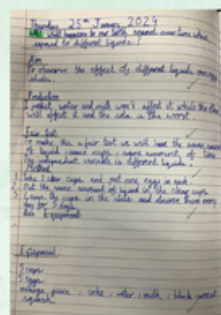 Thursday 25th January 2024
What happens to our teeth / egg over time when
exposed to different liquids?
Aim
To observe the effect of different liquids on egg
shells.
Prediction
I predict, water and milk won't affect it while the
will affect it and the coke is the worst.
Fair test
To make this a fair test we will have the same
of liquid same cups, same amount of time.
The independent variable is different liquids.
Method
1 Take 5 clear cups and put one egg in each.
2 Put the same amount of liquid in the clear cups.
3 Leave the cups in the class and observe them every
day for 5 days.
Equipment
Equipment
5 cups
5 Eggs
orange juice, coke, water, milk, black currant
squash